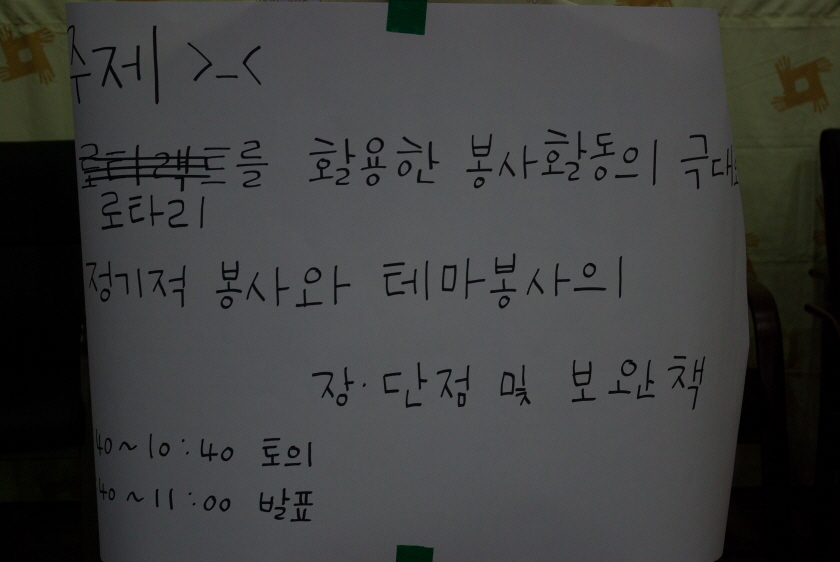 주제 >_<
로타랙트를 활용한 봉사활동의 극대
로타리
정기적 봉사와 테마봉사의
장·단점 및 보완책
40~10:40 토의
40~11:00 발표